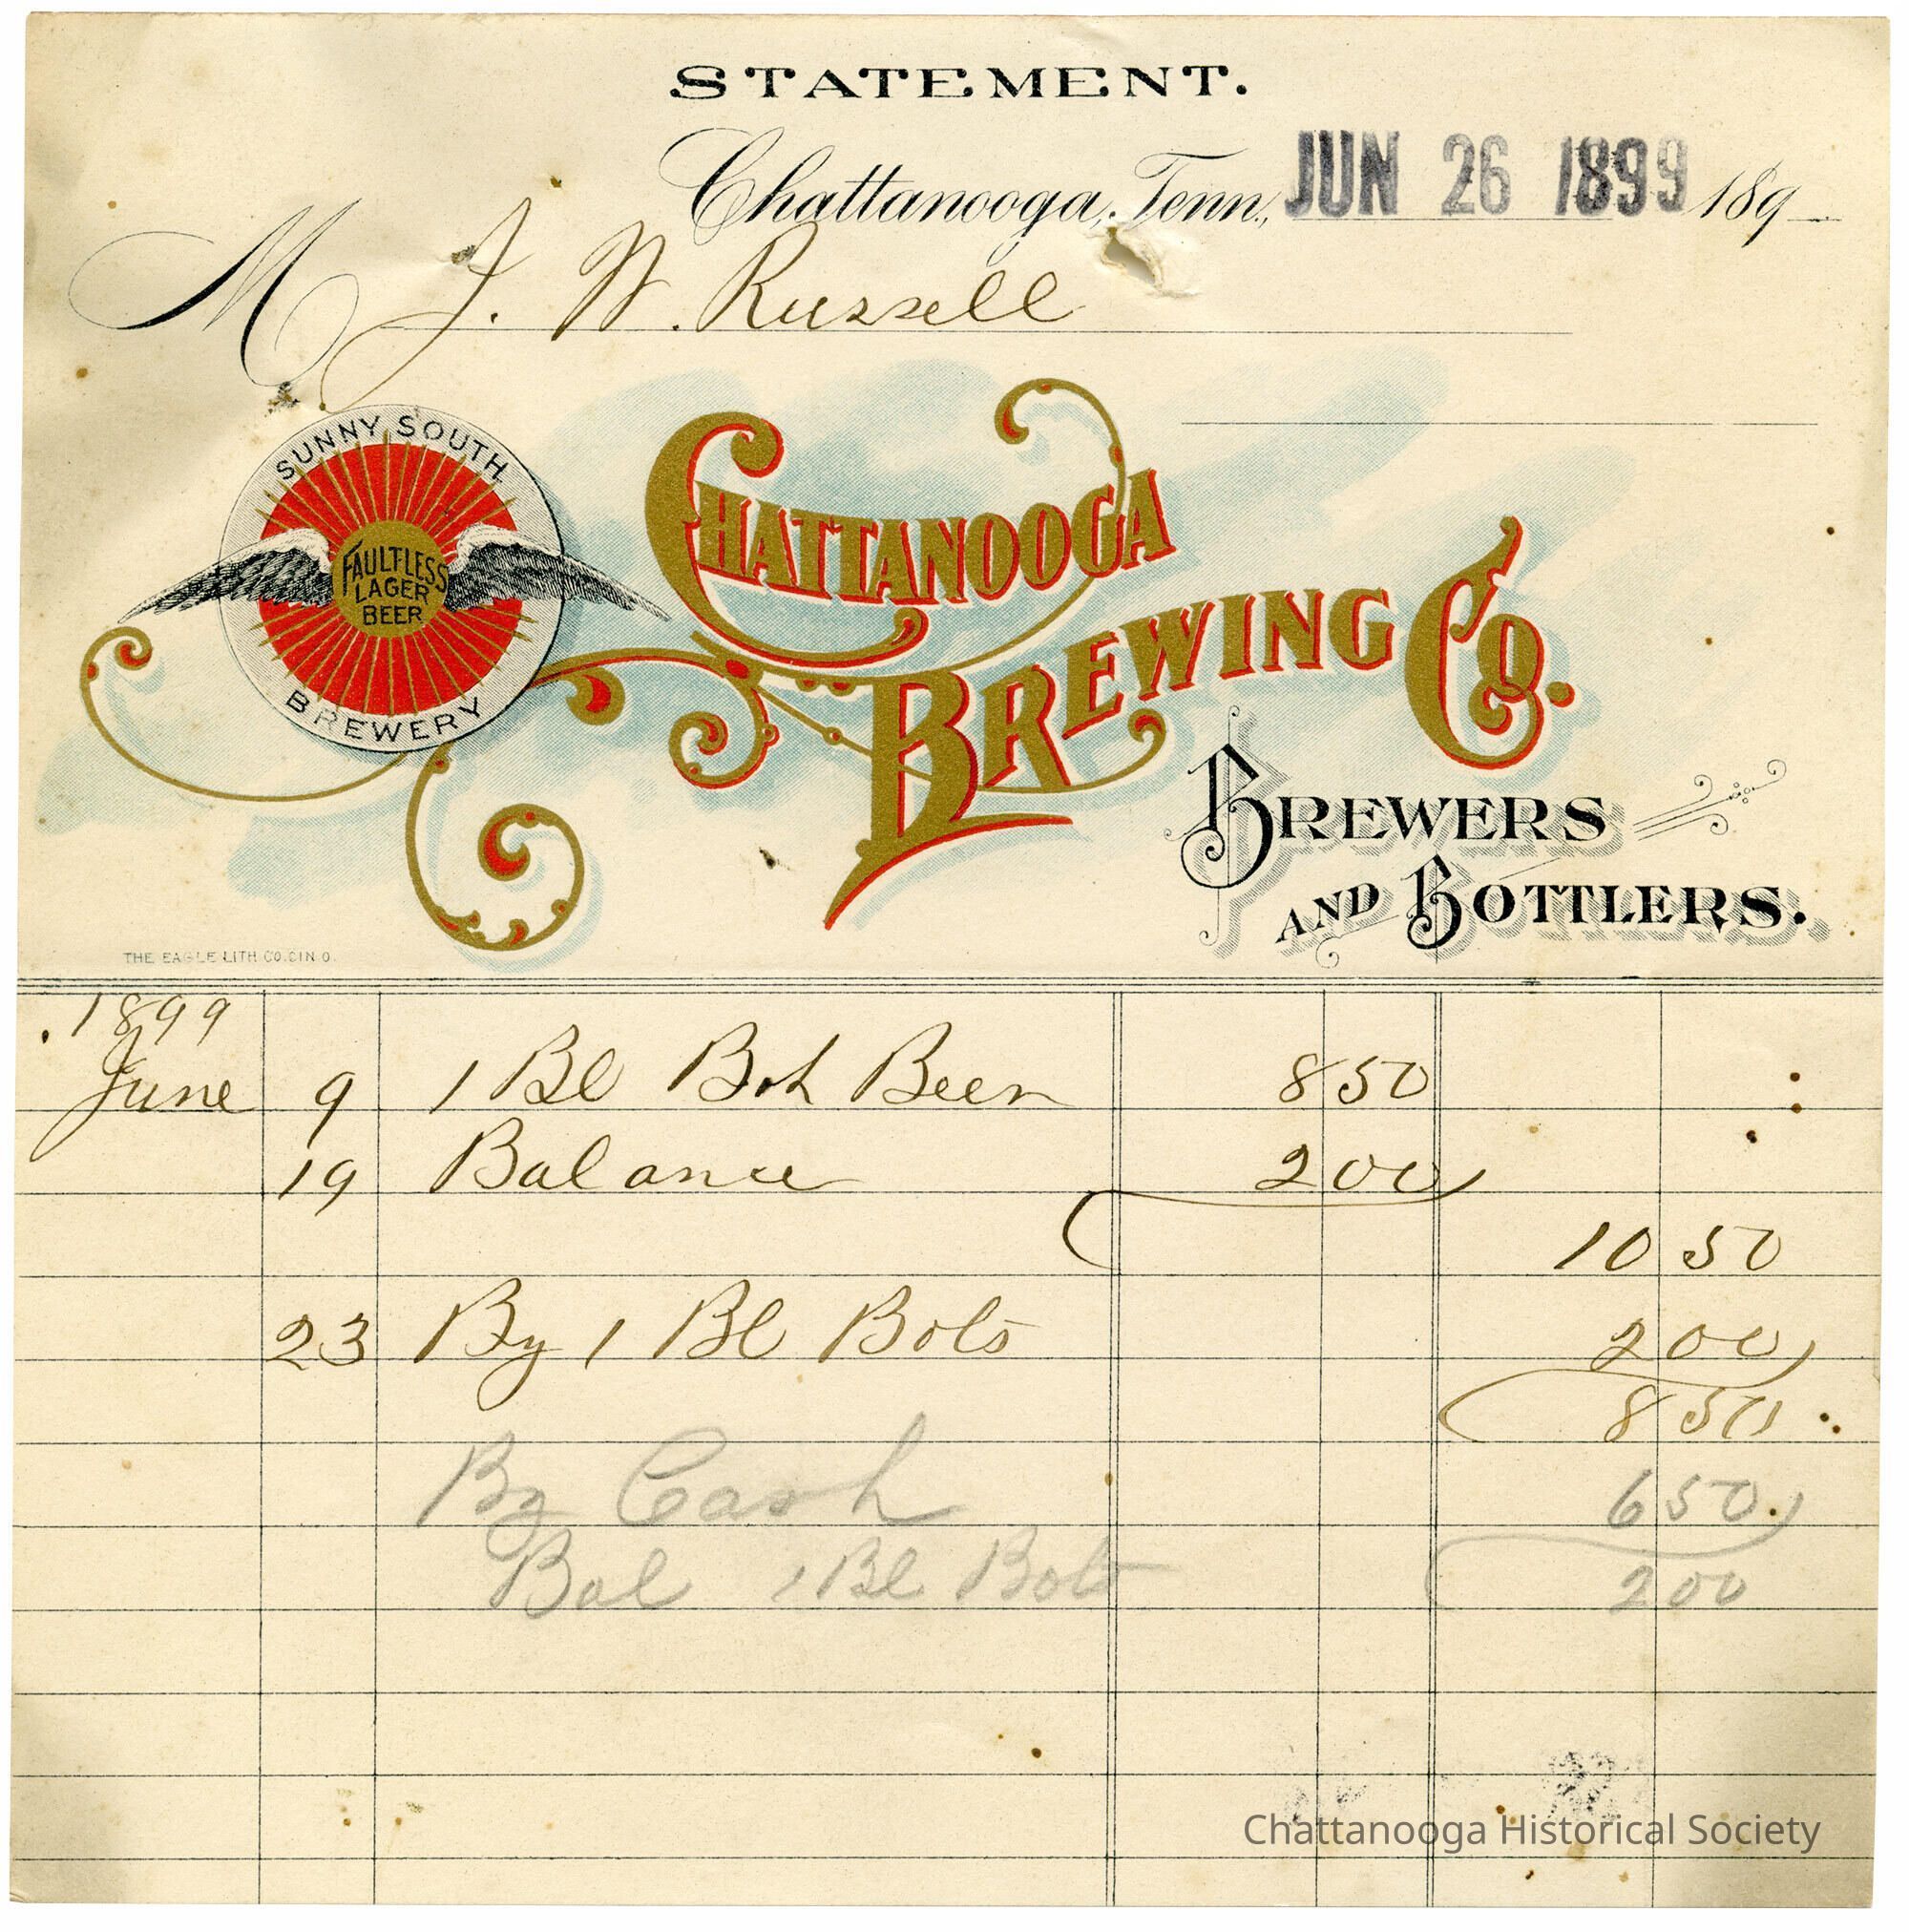 STATEMENT.
Chattanooga, Tenn., JUN 26 1899 189
M J. W. Russell
SUNNY SOUTH
FAULTLESS
LAGER
BEER
BREWERY
CHATTANOOGA
BREWING CO.
BREWERS
AND BOTTLERS.
THE EAGLE LITH. CO. CIN. O.
1899
June 9 1 Bl Bot Beer 8 50
19 Balance 2 00
10 50
23 By 1 Bl Bots 2 00
8 50
By Cash 6 50
Bal 1 Bl Bots 2 00
Chattanooga Historical Society